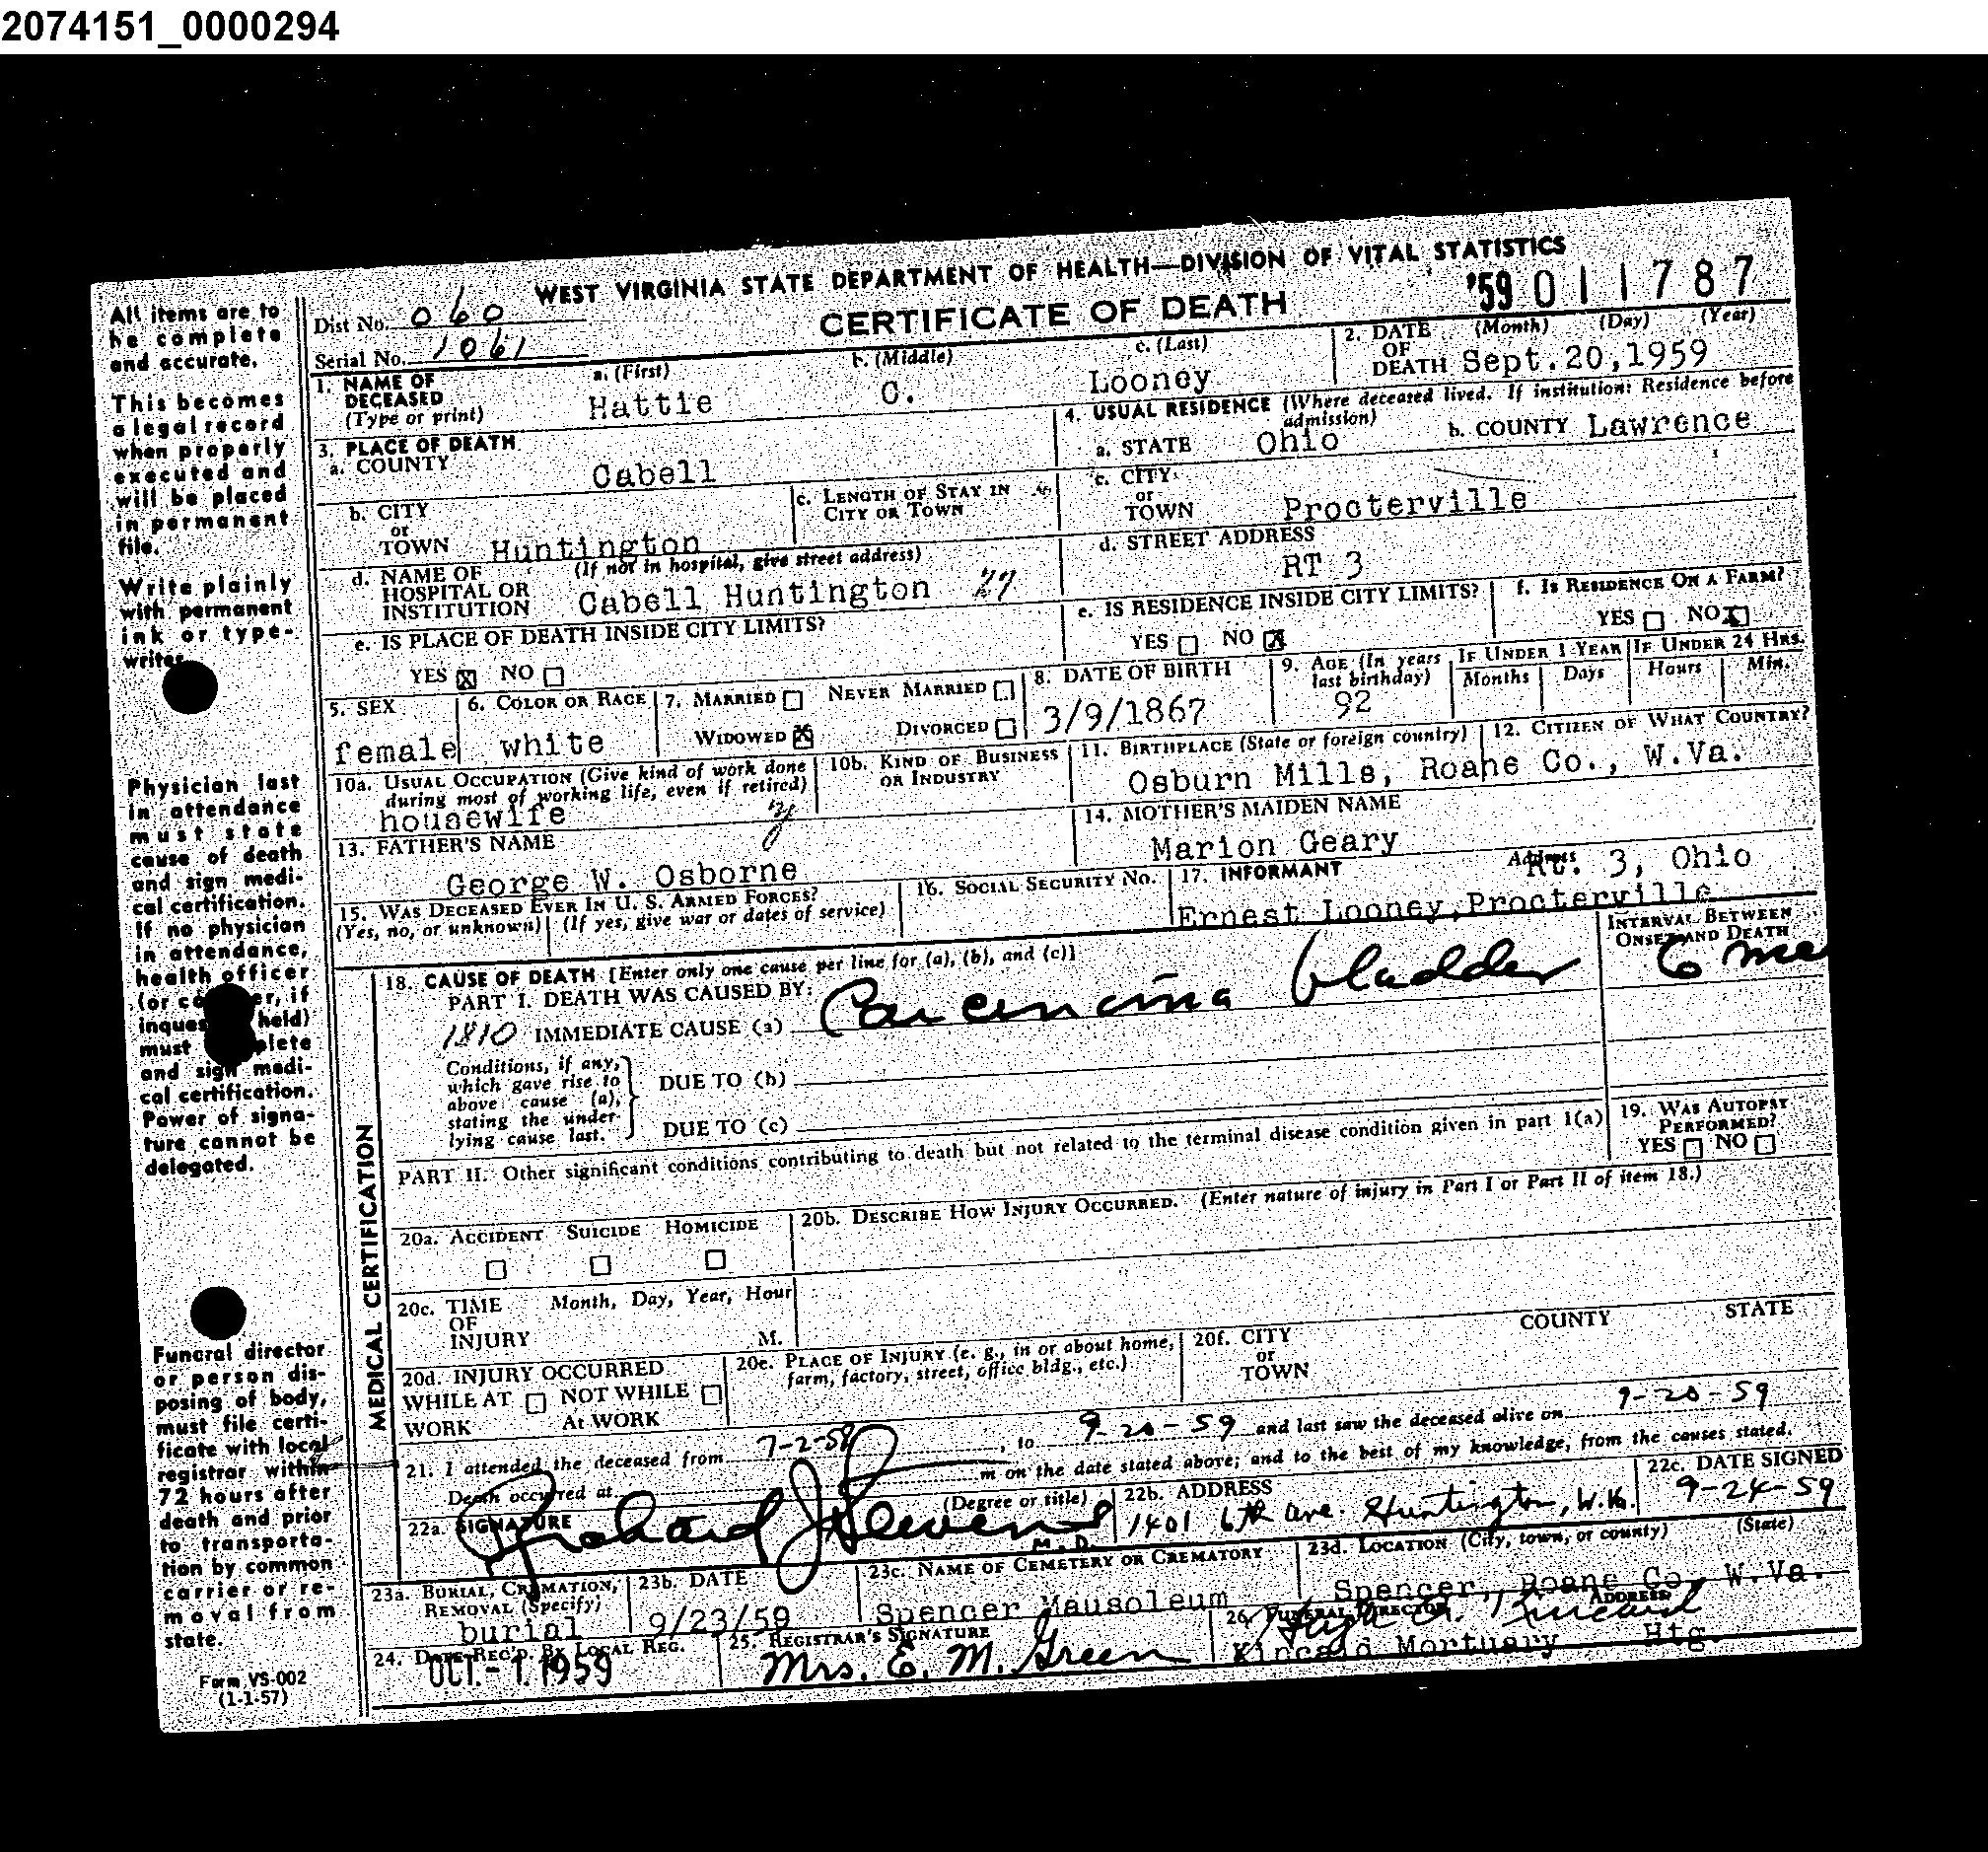 2074151_0000294
WEST VIRGINIA STATE DEPARTMENT OF HEALTH—DIVISION OF VITAL STATISTICS
CERTIFICATE OF DEATH
'59 011787
Dist No. 060
Serial No. 1061
All items are to
be complete
and accurate.
This becomes
a legal record
when properly
executed and
will be placed
in permanent
file.
Write plainly
with permanent
ink or type-
writer
Physician last
in attendance
must state
cause of death
and sign medi-
cal certification.
If no physician
in attendance,
health officer
(or er, if
inques held)
must plete
and sign medi-
cal certification.
Power of signa-
ture cannot be
delegated.
Funeral director
or person dis-
posing of body,
must file certi-
ficate with local
registrar within
72 hours after
death and prior
to transporta-
tion by common
carrier or re-
moval from
state.
Form VS-002
(1-1-57)
1. NAME OF DECEASED (Type or print)
a. (First) Hattie
b. (Middle) C.
c. (Last) Looney
2. DATE OF DEATH (Month) (Day) (Year) Sept.20,1959
3. PLACE OF DEATH
a. COUNTY Cabell
b. CITY or TOWN Huntington
c. LENGTH OF STAY IN CITY OR TOWN
d. NAME OF HOSPITAL OR INSTITUTION (If not in hospital, give street address) Cabell Huntington 27
e. IS PLACE OF DEATH INSIDE CITY LIMITS?
YES X NO
4. USUAL RESIDENCE (Where deceased lived. If institution: Residence before admission)
a. STATE Ohio
b. COUNTY Lawrence
c. CITY or TOWN Procterville
d. STREET ADDRESS RT 3
e. IS RESIDENCE INSIDE CITY LIMITS?
YES NO X
f. IS RESIDENCE ON A FARM?
YES NO X
5. SEX female
6. COLOR OR RACE white
7. MARRIED NEVER MARRIED
WIDOWED X DIVORCED
8. DATE OF BIRTH 3/9/1867
9. AGE (In years last birthday) 92
IF UNDER 1 YEAR Months Days
IF UNDER 24 HRS. Hours Min.
10a. USUAL OCCUPATION (Give kind of work done during most of working life, even if retired) housewife
10b. KIND OF BUSINESS OR INDUSTRY
11. BIRTHPLACE (State or foreign country) Osburn Mills, Roane Co., W.Va.
12. CITIZEN OF WHAT COUNTRY?
13. FATHER'S NAME George W. Osborne
14. MOTHER'S MAIDEN NAME Marion Geary
15. WAS DECEASED EVER IN U. S. ARMED FORCES?
(Yes, no, or unknown) (If yes, give war or dates of service)
16. SOCIAL SECURITY NO.
17. INFORMANT Address Rt. 3, Ohio
Ernest Looney, Procterville
MEDICAL CERTIFICATION
18. CAUSE OF DEATH [Enter only one cause per line for (a), (b), and (c)]
PART I. DEATH WAS CAUSED BY:
1810 IMMEDIATE CAUSE (a) Carcinoma bladder
INTERVAL BETWEEN ONSET AND DEATH
Conditions, if any, which gave rise to above cause (a), stating the under-lying cause last.
DUE TO (b)
DUE TO (c)
PART II. Other significant conditions contributing to death but not related to the terminal disease condition given in part I(a)
19. WAS AUTOPSY PERFORMED?
YES NO
20a. ACCIDENT SUICIDE HOMICIDE
20b. DESCRIBE HOW INJURY OCCURRED. (Enter nature of injury in Part I or Part II of item 18.)
20c. TIME OF INJURY Month, Day, Year, Hour M.
20d. INJURY OCCURRED
WHILE AT WORK NOT WHILE At WORK
20e. PLACE OF INJURY (e. g., in or about home, farm, factory, street, office bldg., etc.)
20f. CITY or TOWN COUNTY STATE
21. I attended the deceased from 7-2-58, to 9-20-59 and last saw the deceased alive on 9-20-59
Death occurred at m on the date stated above; and to the best of my knowledge, from the causes stated.
22a. SIGNATURE (Degree or title) Richard J. Stevens M.D.
22b. ADDRESS 1401 6th ave. Huntington, W.Va.
22c. DATE SIGNED 9-24-59
23a. BURIAL, CREMATION, REMOVAL (Specify) burial
23b. DATE 9/23/59
23c. NAME OF CEMETERY OR CREMATORY Spencer Mausoleum
23d. LOCATION (City, town, or county) (State) Spencer, Roane Co, W.Va.
24. DATE REC'D. BY LOCAL REG. OCT - 1 1959
25. REGISTRAR'S SIGNATURE Mrs. E. M. Green
26. FUNERAL DIRECTOR ADDRESS
Kincaid Mortuary Htg.